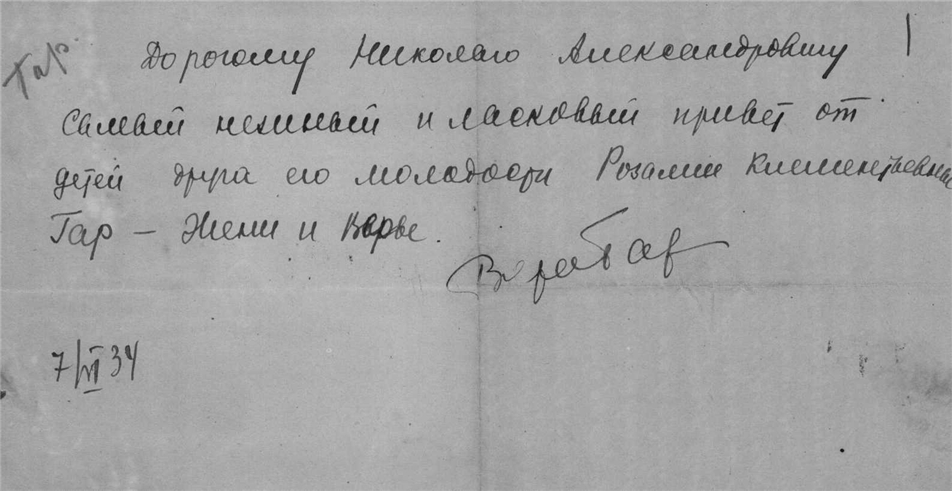 Гар.
Дорогому Николаю Александровичу
самый нежный и ласковый привет от
детей друга его молодости Розалии Климентьевны
Гар – Жени и
Вера Гар
7/VI 34